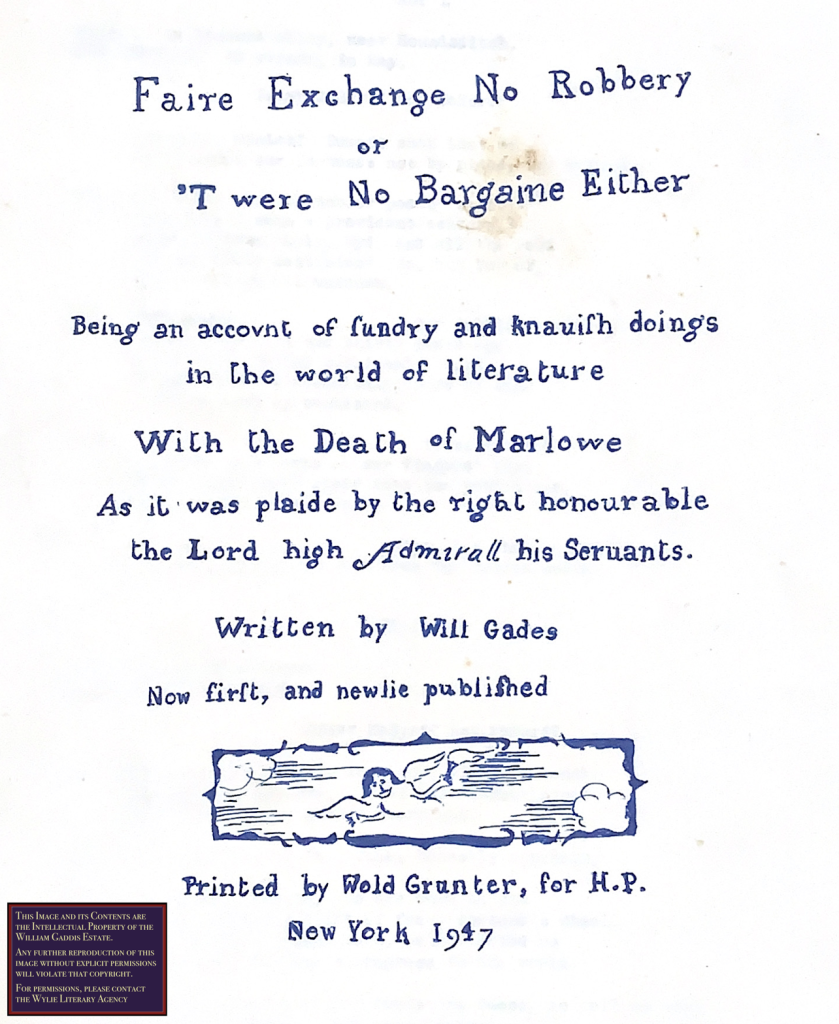 Faire Exchange No Robbery
or
'T were No Bargaine Either
Being an accovnt of ſundry and knauiſh doings
in the world of literature
With the Death of Marlowe
As it was plaide by the right honourable
the Lord high Admirall his Seruants.
Written by Will Gades
Now firſt, and newlie publiſhed
Printed by Wold Grunter, for H.P.
New York 1947
This Image and its Contents are
the Intellectual Property of the
William Gaddis Estate.
Any further reproduction of this
image without explicit permissions
will violate that copyright.
For permissions, please contact
the Wylie Literary Agency